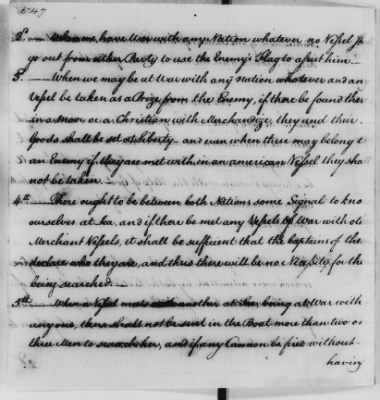 2d — When we have War with any Nation whatever no Vessel
go out from either Party to use the Enemy's Flag to assist him. —
3. — When we may be at War with any nation whatever and an
Vessel be taken as a Prize from the Enemy, if there be found ther
in a Moor or a Christian with Merchandize, they and their
Goods shall be set at Liberty — and even when these may belong t
an Enemy if they are met with in an american Vessel they shal
not be taken. —
4th — There ought to be between both Nations some Signal to kno
ourselves at sea, and if there be met any Vessels of War with
Merchant Vessels, it shall be sufficient that the Captains of the
declare who they are, and thus there will be no Necessity for the
being searched. —
5th — When a Vessel meets another at Sea being at War with
anyone, there shall not be sent in the Boat more than two o
three Men to search her, and if any Cannon be fired without
having